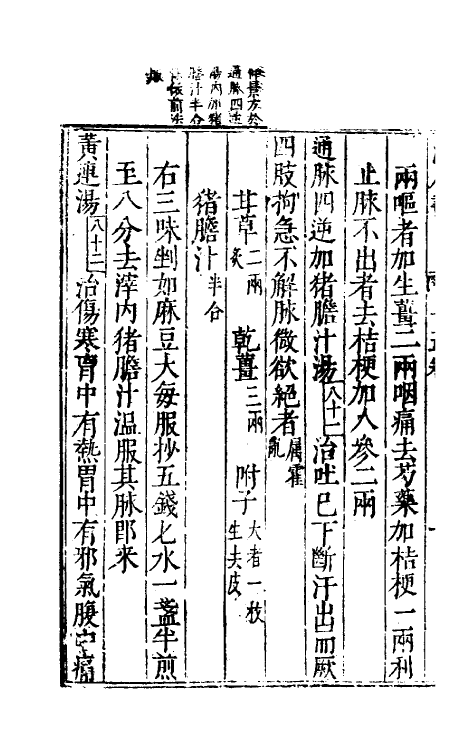 仲景方於
通脉四逆
湯內加猪
膽汁半合
依前法
服
兩嘔者加生薑二兩咽痛去芍藥加桔梗一兩利
止脉不出者去桔梗加人參二兩
通脉四逆加猪膽汁湯八十二治吐已下斷汗出而厥
四肢拘急不解脉微欲絕者屬霍亂
甘草二兩炙 乾薑三兩 附子大者一枚生去皮
猪膽汁半合
右三味剉如麻豆大每服抄五錢匕水一盞半煎
至八分去滓內猪膽汁溫服其脉即来
黃連湯八十二治傷寒胷中有熱胃中有邪氣腹中痛